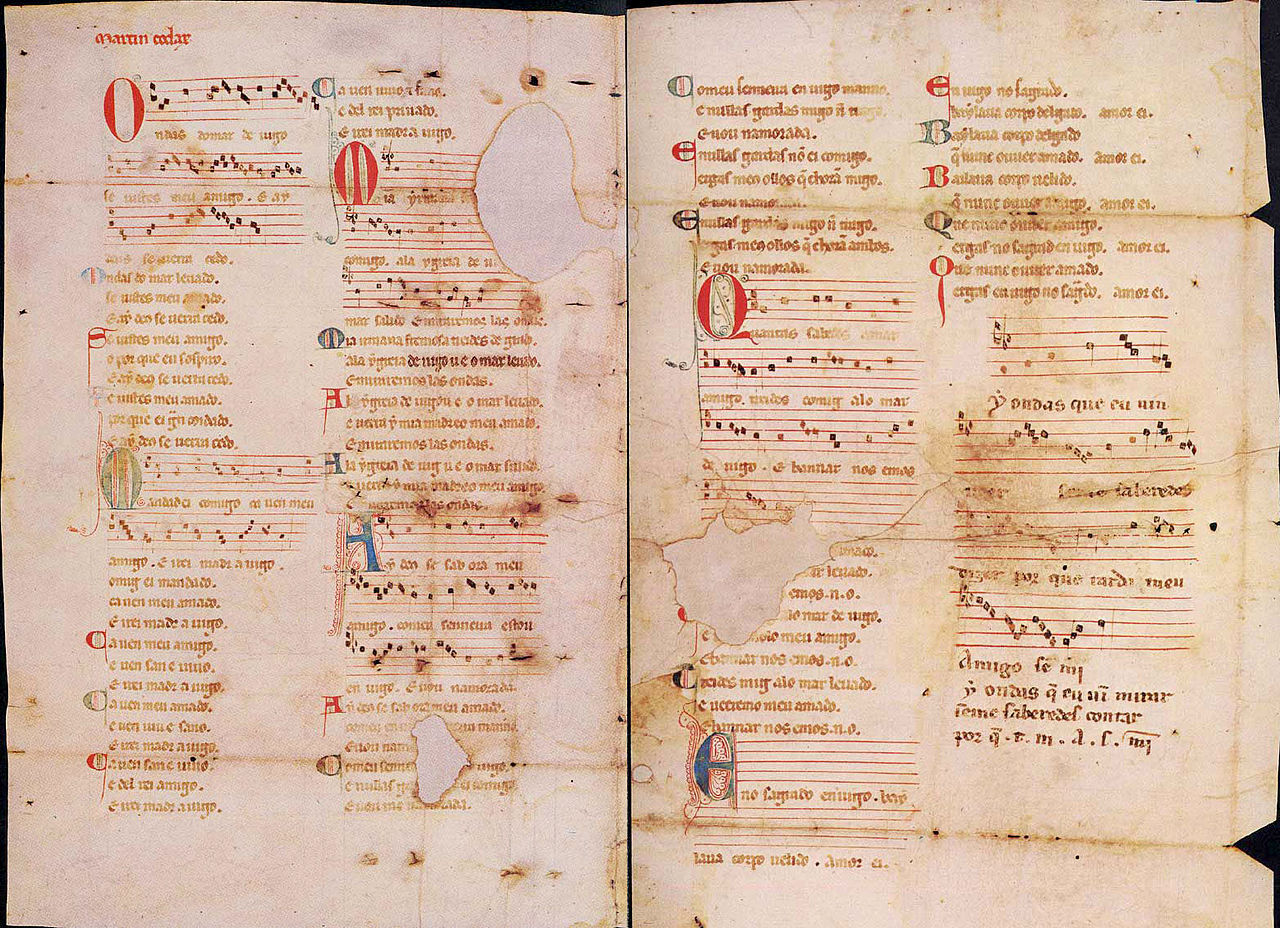 Martin codax
Ondas do mar de uigo
se uistes meu amigo. E ay
deus se uerra cedo.
Ondas do mar leuado.
se uistes meu amado.
E ay deo se uerra cedo.
Se uistes meu amigo.
o por que eu sospiro.
E ay deo se uerra cedo.
Se uistes meu amado.
por que ei gran coidado.
E ay deo se uerra cedo.
Mandad ei comigo ca uen meu
amigo. E irei madr a uigo.
omig ei mandado.
ca uen meu amado.
E irei madr a uigo.
Ca uen meu amigo.
e uen san e uiuo.
E irei madr a uigo.
Ca uen meu amado.
e uen uiue sano.
E irei madr a uigo.
Ca uen san e uiuo.
e del rei amigo.
E irei madr a uigo.
Ca uen uiuo e sano.
e del rei priuado.
E irei madr a uigo.
Mia yrmana
comigo. ala ygreia de ui
mar salido E miraremos las ondas.
Mia irmana fremosa treides de grado.
ala ygreia de uigo u e o mar leuado.
E miraremos las ondas.
Ala ygreia de uigo u e o mar leuado.
e uerra y mia madre o meu amado.
E miraremos las ondas.
Ala ygreia de uig u e o mar salido.
e uerra y mia madre o meu amigo.
E miraremos las ondas.
Ay deo se sab ora meu
amigo. comeu senneira estou
en uigo. E uou namorada.
Ay deo se sab ora meu amado.
comeu en uigo manno.
E uou nam
Comeu senn uigo.
e nullas gar comigo.
E uou namorada.
Comeu senneira en uigo manno.
e nullas gardas migo
E uou namorada.
E nullas gardas nō ei comigo.
ergas meo ollos q̄ chorā migo.
E uou namorada.
E nullas gardas migo ñ trago.
ergas meo ollos q̄ chorā ambos.
E uou namorada.
Quantas sabedes amar
amigo. treides comig alo mar
de uigo. E bannar nos emos
amado.
mar leuado.
emos. n. o.
lo mar de uigo.
e meu amigo.
E bannar nos emos. n. o.
Treides mig alo mar leuado.
e ueeremo meu amado.
E bannar nos emos. n. o.
Eno sagrado en uigo. bay
laua corpo uelido. Amor ei.
En uigo no sagrado.
baylaua corpo delgado. amor ei.
Baylaua corpo delgado
q̄ nunc ouuer amado. amor ei.
Bailaua corpo uelido.
q̄ nunc ouuer amigo. amor ei.
Que nunc ouuer amigo.
ergas no sagrad en uigo. amor ei.
Que nunc ouuer amado.
ergas en uigo no sagrado. amor ei.
Y ondas que eu uin
ueer se me saberedes
dizer por que tarda meu
Amigo sē mi
Y ondas q̄ eu uī mirar
se me saberedes contar
por q̄ . t. m. A. s. mi